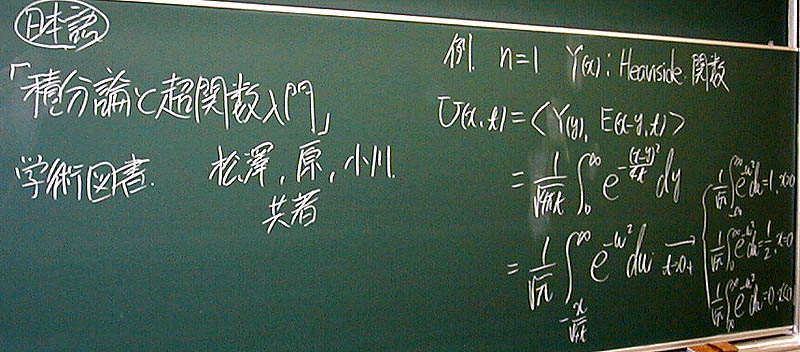 日本語
「積分論と超関数入門」
学術図書. 松澤, 原, 小川.
共著
例. n=1 Y(x): Heaviside 関数
U(x,t) = <Y(y), E(x-y,t)>
= 1/√4πt ∫_0^∞ e^{-(x-y)²/4t} dy
= 1/√π ∫_{-x/√4t}^∞ e^{-w²} dw →_{t→0+}
1/√π ∫_{-∞}^∞ e^{-w²} dw = 1, x>0
1/√π ∫_0^∞ e^{-w²} dw = 1/2, x=0
1/√π ∫_∞^∞ e^{-w²} dw = 0, x<0